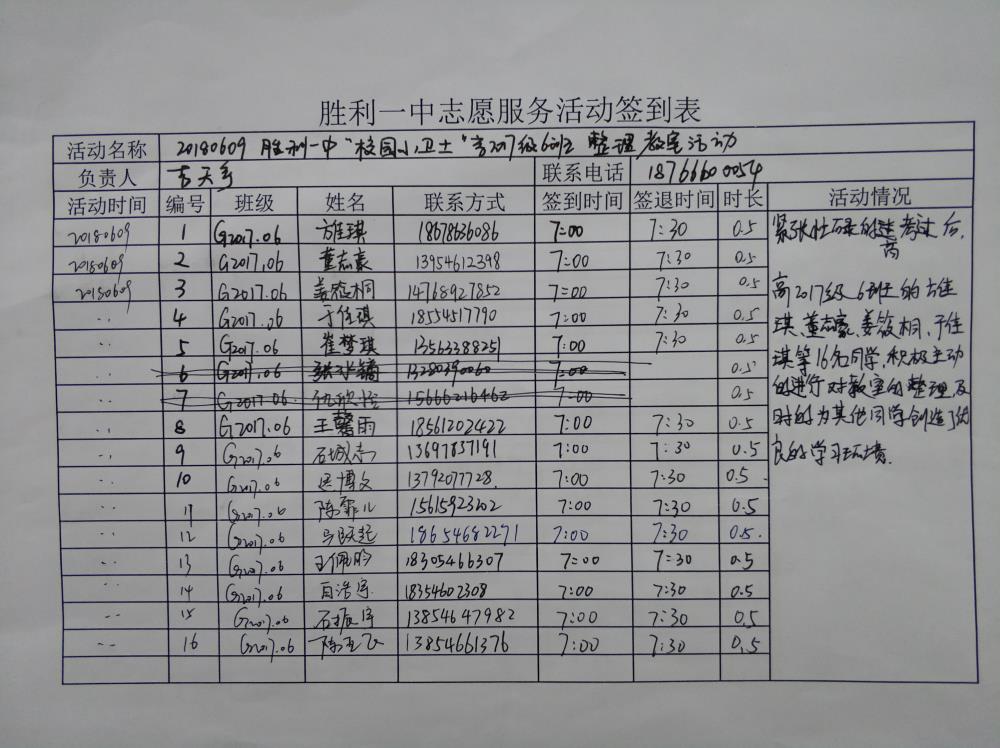 胜利一中志愿服务活动签到表
活动名称 20180609 胜利一中“校园小卫士”高2017级6班 整理教室活动
负责人 联系电话 18766600054
活动时间 编号 班级 姓名 联系方式 签到时间 签退时间 时长 活动情况
20180609 1 G2017.06 方维琪 18678636086 7:00 7:30 0.5
20180609 2 G2017.06 董志豪 13954612398 7:00 7:30 0.5
20180609 3 G2017.06 姜筱桐 14768927852 7:00 7:30 0.5
·· 4 G2017.06 于佳琪 18554517790 7:00 7:30 0.5
·· 5 G2017.06 崔梦琪 13563388251 7:00 7:30 0.5
·· 6 G2017.06 13280390060 7:00 0.5
·· 7 G2017.06 15666216462 7:00 0.5
·· 8 G2017.06 王馨雨 18561202422 7:00 7:30 0.5
·· 9 G2017.06 石城志 13697837191 7:00 7:30 0.5
·· 10 G2017.06 博文 13792077728. 7:00 7:30 0.5
·· 11 G2017.06 陈霏儿 15615923202 7:00 7:30 0.5
·· 12 G2017.06 马跃起 18654682271 7:00 7:30 0.5.
·· 13 G2017.06 王佩昀 18305466307 7:00 7:30 0.5
·· 14 G2017.06 浩宇 18354602308 7:00 7:30 0.5
-- 15 G2017.06 石振宇 13854647982 7:00 7:30 0.5
-- 16 G2017.06 陈 飞 13854661376 7:00 7:30 0.5
紧张忙碌的 考试后,
高2017级6班的方维
琪、董志豪、姜筱桐、于佳
琪等16名同学,积极主动
的进行对教室的整理,及
时的为其他同学创造了优
良的学习环境.